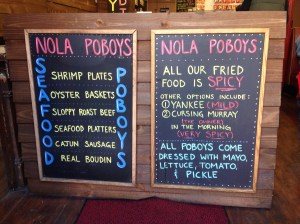 NOLA POBOYS
SEAFOOD
SHRIMP PLATES
OYSTER BASKETS
SLOPPY ROAST BEEF
SEAFOOD PLATTERS
CAJUN SAUSAGE
REAL BOUDIN
POBOYS
NOLA POBOYS
ALL OUR FRIED
FOOD IS SPICY
OTHER OPTIONS INCLUDE:
① YANKEE (MILD)
② CURSING MURRAY
(THE OWNER)
IN THE MORNING
(VERY SPICY)
ALL POBOYS COME
DRESSED WITH MAYO,
LETTUCE, TOMATO,
& PICKLE